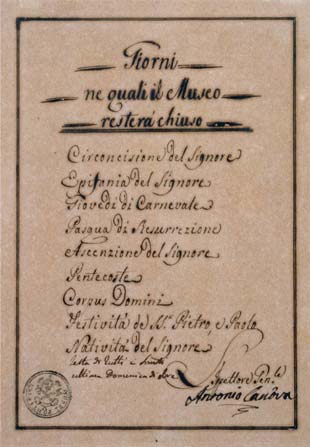 Giorni
ne quali il Museo
resterà chiuso
Circoncisione del Signore
Epifania del Signore
Giovedi di Carnevale
Pasqua di Resurrezione
Ascenzione del Signore
Pentecoste
Corpus Domini
Festività de SS. Pietro, e Paolo
Natività del Signore
Festa di tutti i Santi
ultima Domenica di
Ispettore Gen.le
Antonio Canova